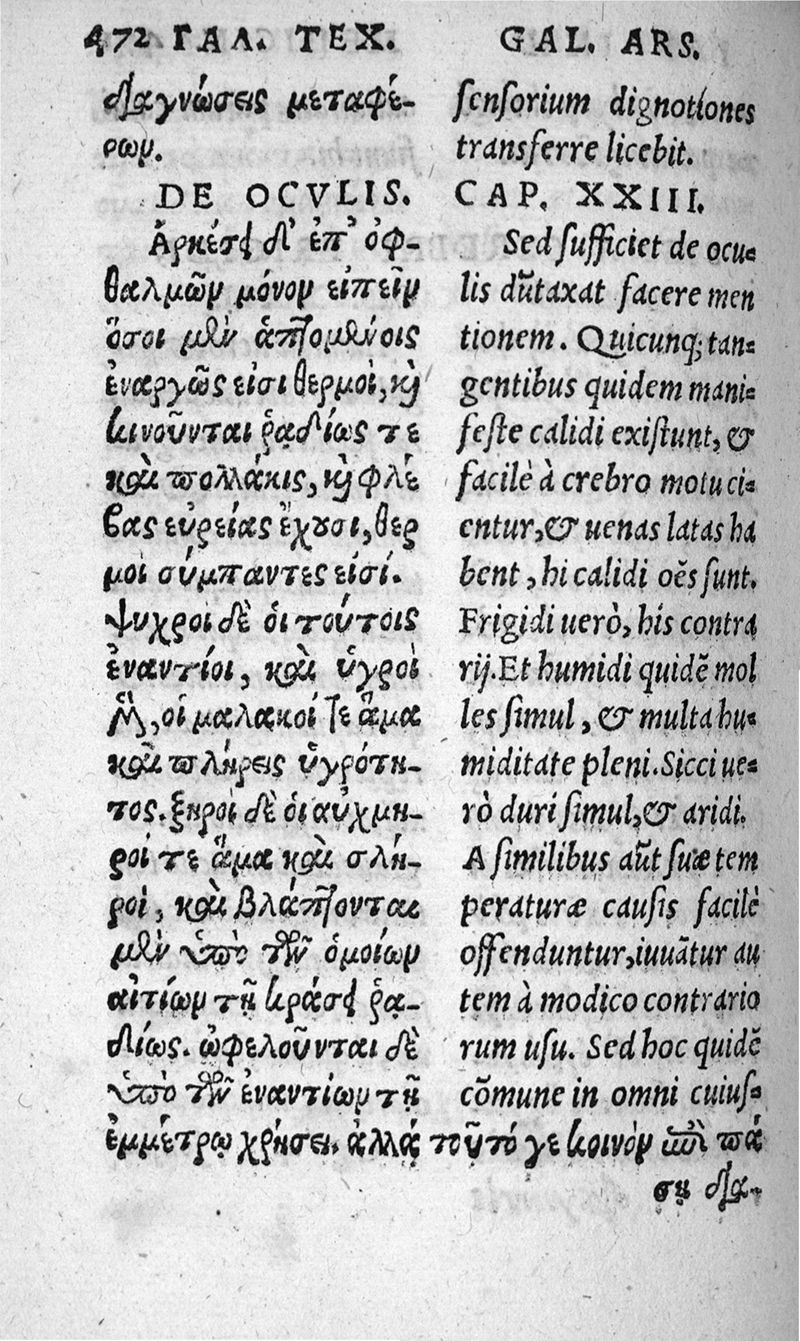 472 ΓΑΛ. ΤΕΧ.
διαγνώσεις μεταφέ-
ρων.
DE OCVLIS.
Ἀρκέσει δ' ἐπ' ὀφ-
θαλμῶν μόνον εἰπεῖν
ὅσοι μὲν ἁπτομένοις
ἐναργῶς εἰσι θερμοὶ, καὶ
κινοῦνται ῥαδίως τε
καὶ πολλάκις, καὶ φλέ
βας εὐρείας ἔχουσι, θερ
μοὶ σύμπαντες εἰσί.
Ψυχροὶ δὲ οἱ τούτοις
ἐναντίοι, καὶ ὑγροὶ
μὲν, οἱ μαλακοί τε ἅμα
καὶ πλήρεις ὑγρότη-
τος. ξηροὶ δὲ οἱ αὐχμη-
ροί τε ἅμα καὶ σκλη-
ροὶ, καὶ βλάπτονται
μὲν ὑπὸ τῶν ὁμοίων
αἰτίων τῇ κράσει ῥα-
δίως. ὠφελοῦνται δὲ
ὑπὸ τῶν ἐναντίων τῇ
ἐμμέτρῳ χρήσει. ἀλλὰ τοῦτό γε κοινὸν ἐπὶ πά
σῃ δια-
GAL. ARS.
ſenſorium dignotiones
transferre licebit.
CAP. XXIII.
Sed ſufficiet de ocu-
lis dūtaxat facere men
tionem. Quicunq; tan-
gentibus quidem mani-
feſte calidi exiſtunt, &
facilè à crebro motu ci-
entur, & uenas latas ha
bent, hi calidi oēs ſunt.
Frigidi uerò, his contra
rij. Et humidi quidē mol
les ſimul, & multa hu-
miditate pleni. Sicci ue-
rò duri ſimul, & aridi.
A ſimilibus aūt ſuæ tem
peraturæ cauſis facilè
offenduntur, iuuātur au
tem à modico contrario
rum uſu. Sed hoc quidē
cōmune in omni cuiuſ-